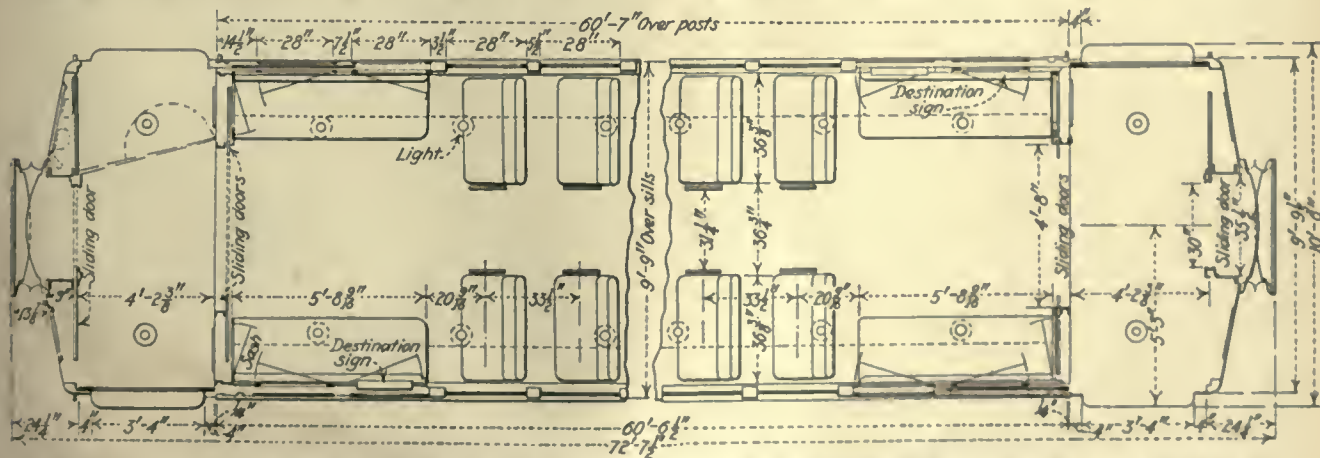 60'-7" Over posts
4"
14½" 28" 7½" 28" 3½" 28" 5½" 28"
Destination sign
Light
Sliding door
Sliding doors
9'-9" Over sills
36⅜"
31¼"
36¾"
4'-8"
Sliding doors
30"
Sliding door
35½"
9'-9½"
10'-8"
9"
13⅝"
4'-2⅜"
5'-8⅝"
20⅝"
33½"
33½"
20⅝"
5'-8⅝"
4'-2⅜"
36⅜"
5'-5"
Sash
Destination sign
24½" 4" 3'-4" 4"
60'-6½"
4" 4" 3'-4" 24½"
72'-7½"